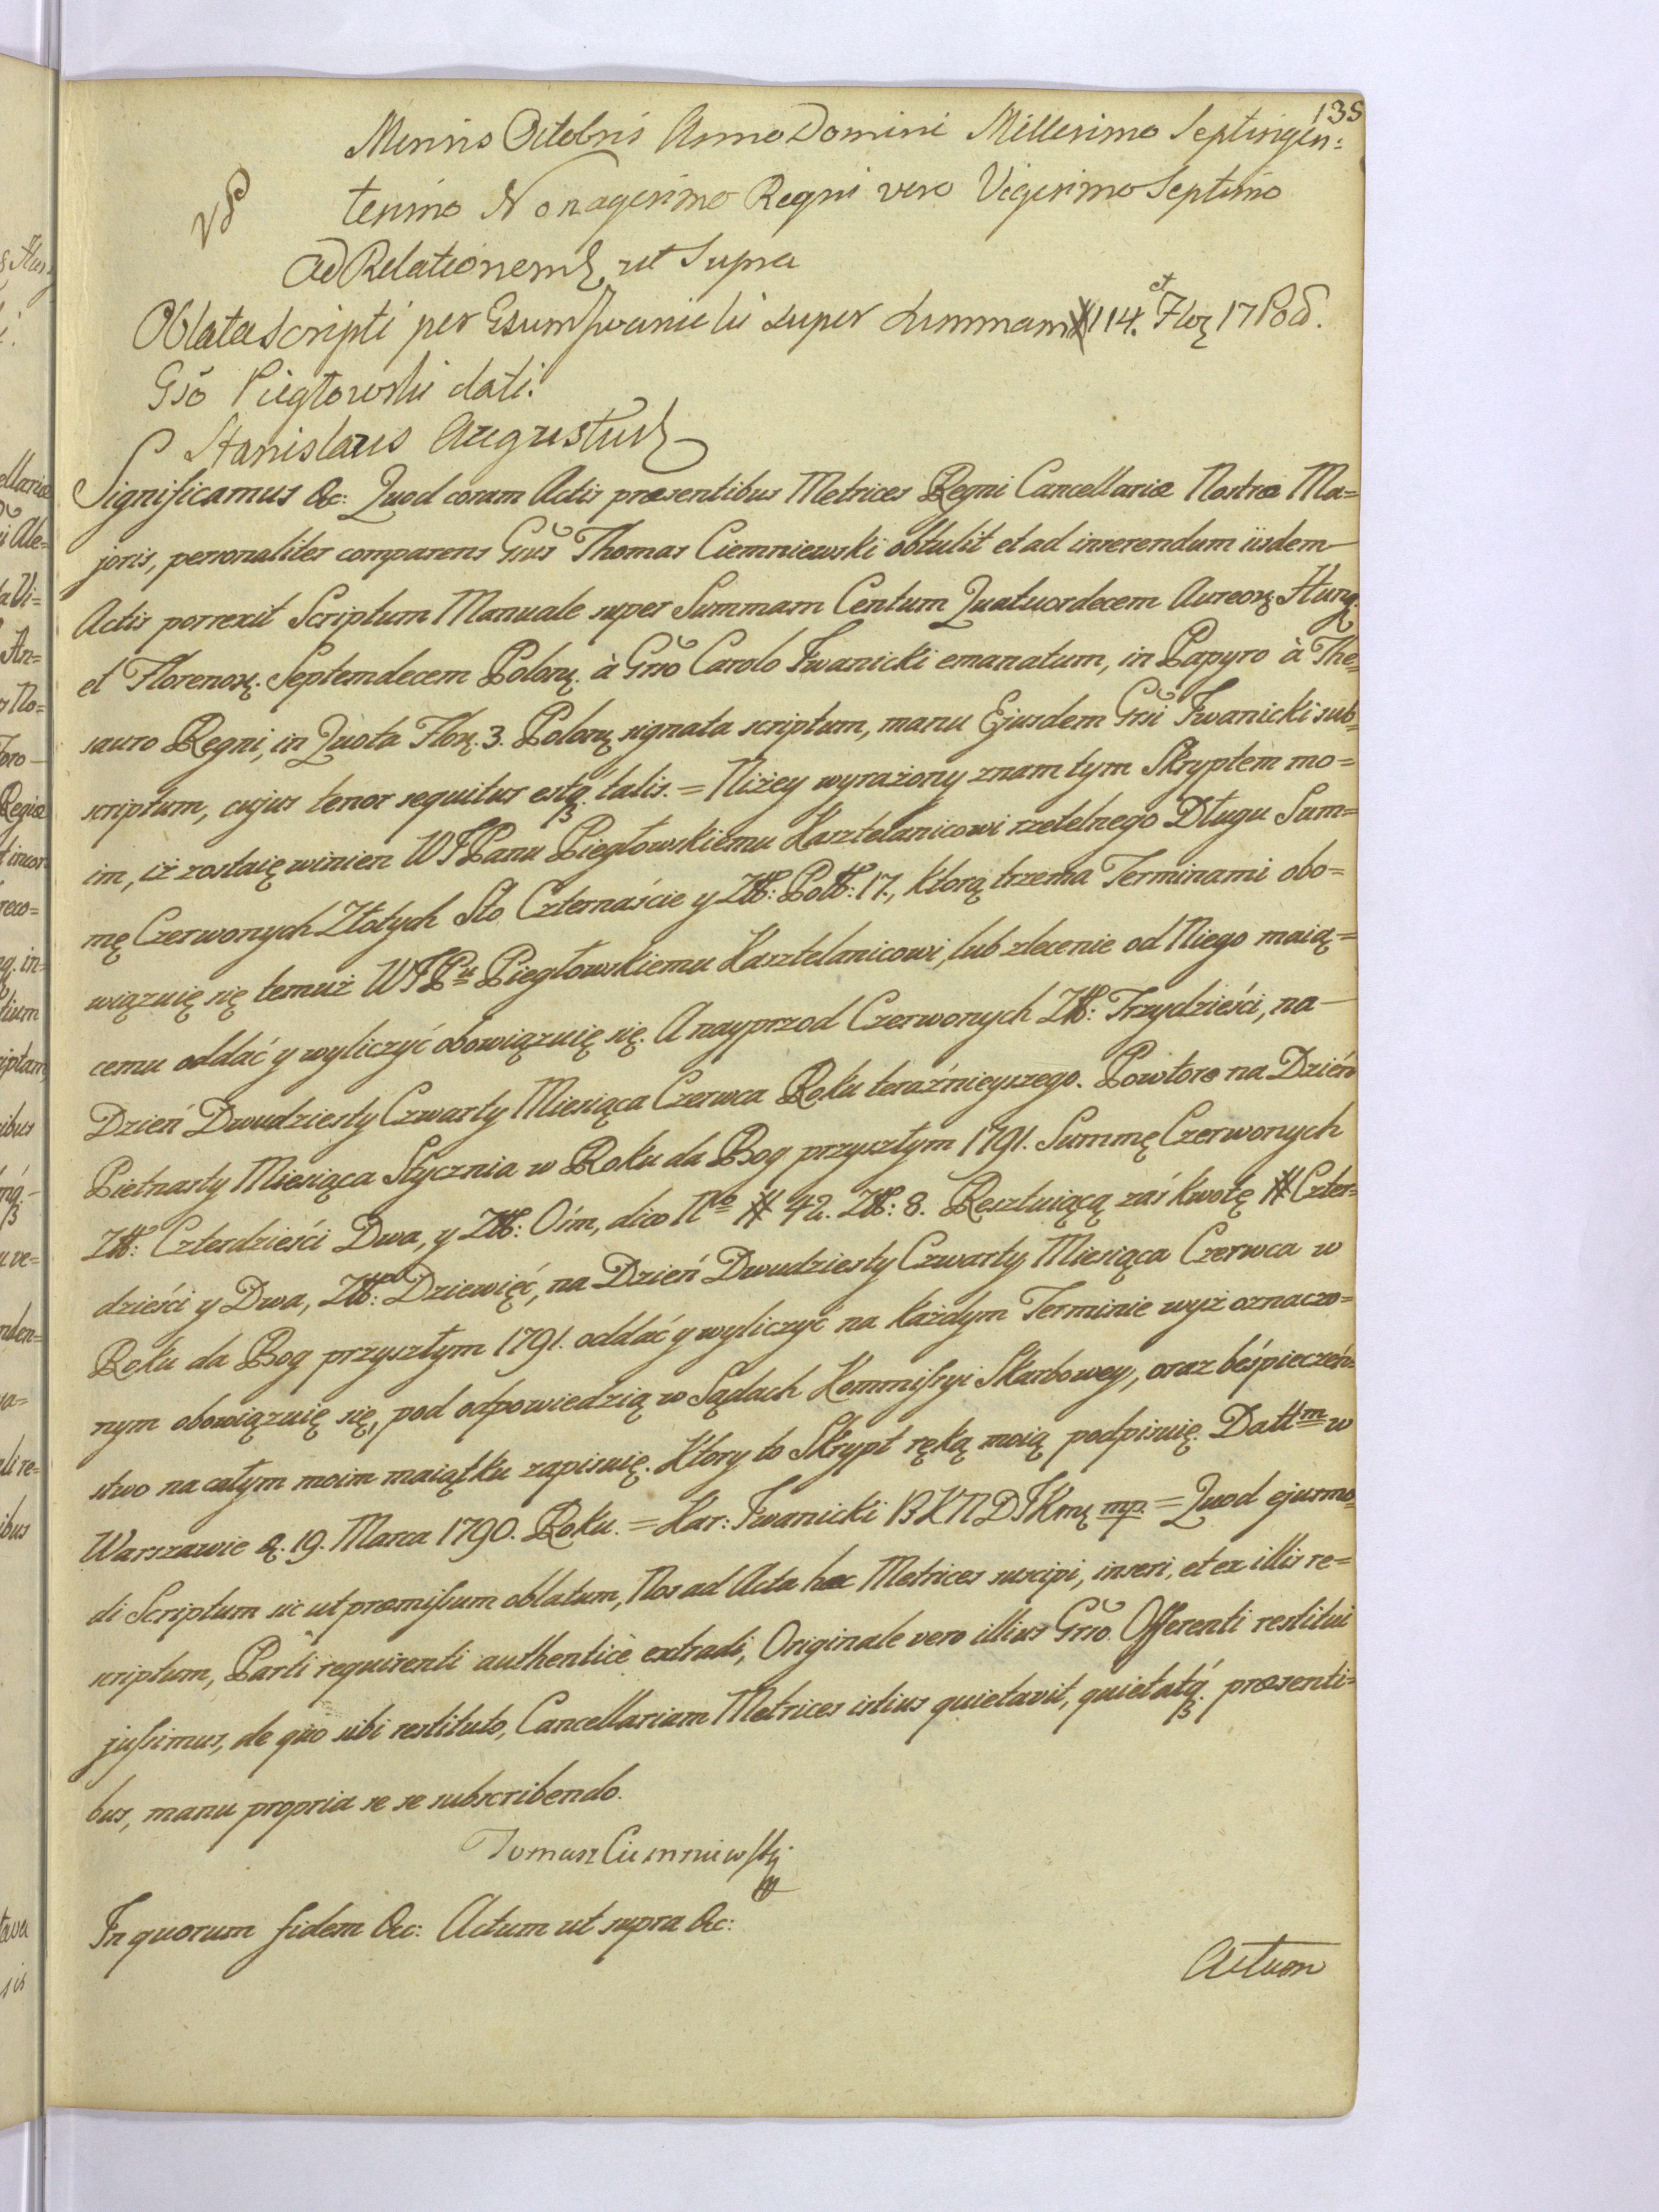 135
Mensis Octobris Anno Domini Millesimo Septingen:
tesimo Nonagesimo Regni vero Vigesimo Septimo
Ad Relationem ut Supra
Oblata Scripti per Gsum Iwanicki super Summam # 114. et Flor 17 Pol.
Gso Piegłowski dati.
Stanislaus Augustus
Significamus &c: Quod coram Actis præsentibus Metrices Regni Cancellariæ Nostræ Ma=
joris, personaliter comparens Gnus Thomas Ciemniewski obtulit et ad inserendum iisdem
Actis porrexit Scriptum Manuale super Summam Centum Quatuordecem Aureoꝝ Hung.
et Florenoꝝ. Septemdecem Polonꝝ. à Gnso Carolo Iwanicki emanatum, in Papyro à The=
sauro Regni, in Quota Floꝝ. 3. Polonꝝ signata scriptum, manu Ejusdem Gnsi Iwanicki sub=
scriptum, cujus tenor sequitur estq́ꝫ talis. = Niżey wyrażony znam tym Skryptem mo=
im, iż zostaię winien WJPanu Piegłowskiemu Kasztelanicowi rzetelnego Długu Sum=
mę Czerwonych Złotych Sto Czternaście y Złł: Poll: 17., którą trzema Terminami obo=
wiązuię się temuż WJPu Piegłowskiemu Kasztelanicowi, lub zlecenie od Niego maią=
cemu oddać y wyliczyć obowiązuię się. A nayprzod Czerwonych Złł: Trzydzieści, na
Dzień Dwudziesty Czwarty Miesiąca Czerwca Roku teraźnieyszego. Powtore na Dzień
Pietnasty Miesiąca Stycznia w Roku da Bog przyszłym 1791. Summę Czerwonych
Złł: Czterdzieści Dwa, y Złł: Ośm, dico No # 42. Złł: 8. Resztuiącą zaś kwotę # Czter=
dzieści y Dwa, Złł: Dziewięć, na Dzień Dwudziesty Czwarty Miesiąca Czerwca w
Roku da Bog przyszłym 1791. oddać y wyliczyć na każdym Terminie wyż oznaczo=
nym obowiązuię się, pod odpowiedzią w Sądach Kommissyi Skarbowey, oraz beśpieczeń=
stwo na całym moim maiątku zapisuię. Ktory to Skrypt ręką moią podpisuię. Dattm w
Warszawie d. 19. Marca 1790. Roku. = Kar: Iwanicki BKNDJKmꝝ mp. = Quod ejusmo=
di Scriptum sic ut præmissum oblatum, Nos ad Acta hæc Metrices suscipi, inseri, et ex illis re=
scriptum, Parti requirenti authenticè extradi, Originale vero illius Gnso. Offerenti restitui
jussimus, de quo sibi restituto, Cancellariam Metrices istius quietavit, quietatq́ꝫ. præsenti=
bus, manu propria se se subscribendo.
Tomasz Ciemniewski
In quorum fidem &c: Actum ut supra &c:
Actum